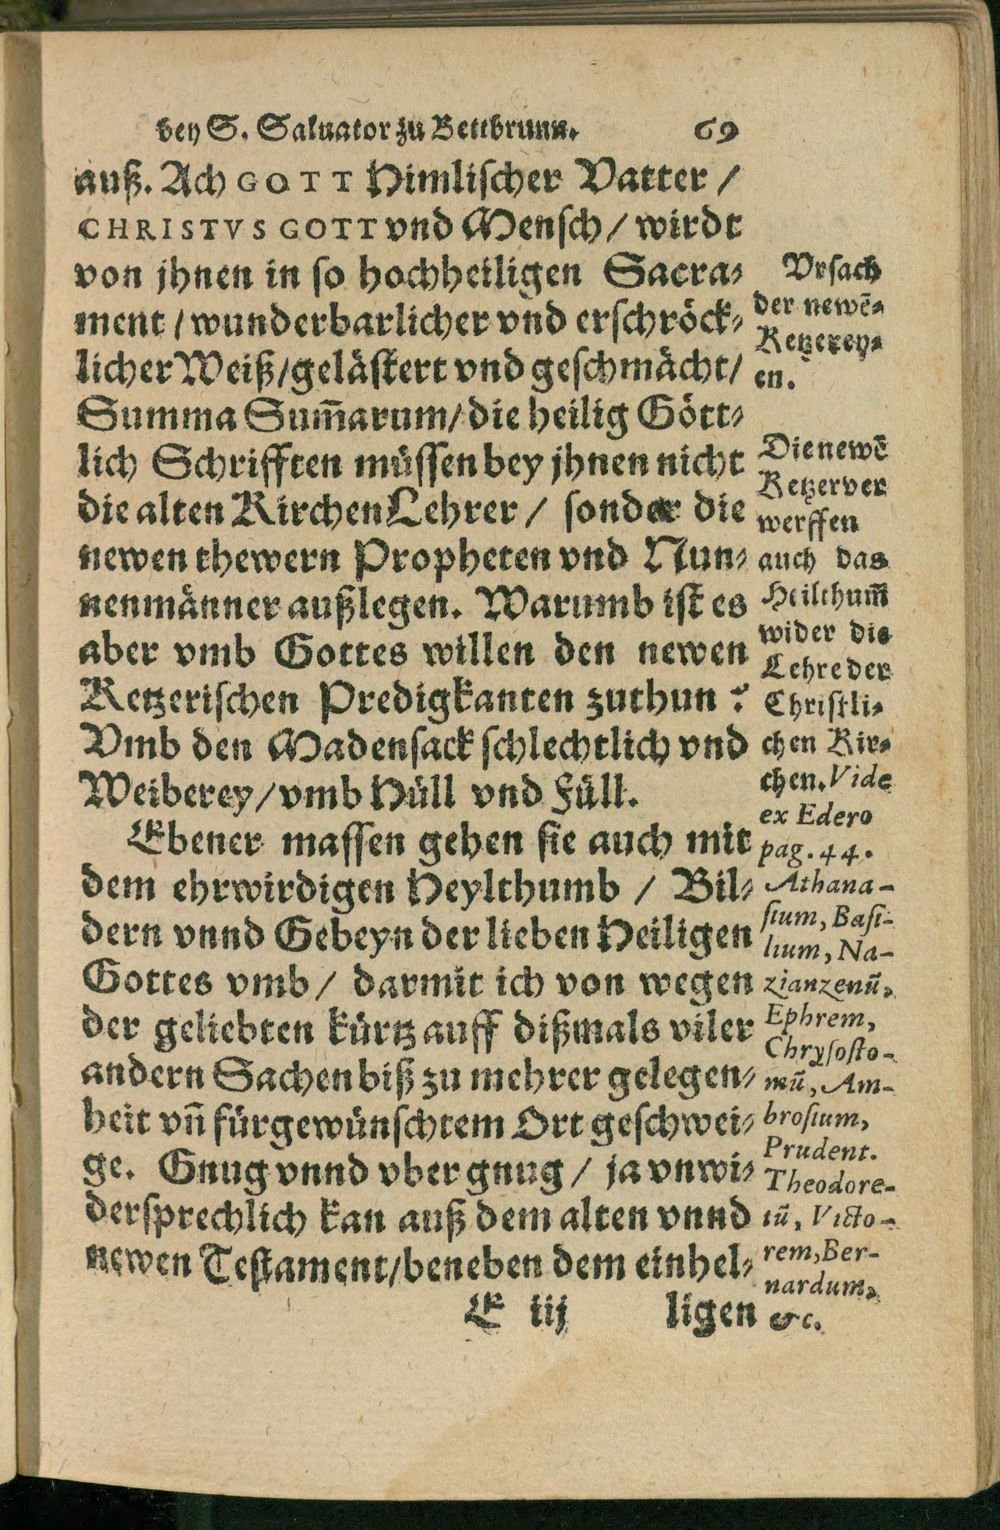 bey S. Saluator zu Bettbrunn. 69
auß. Ach GOTT Himlischer Vatter /
CHRISTVS GOTT vnd Mensch / wirdt
von jhnen in so hochheiligen Sacra⸗
ment / wunderbarlicher vnd erschröck⸗
licher Weiß / gelästert vnd geschmächt /
Summa Sum̃arum / die heilig Gött⸗
lich Schrifften müssen bey jhnen nicht
die alten Kirchen Lehrer / sonder die
newen thewern Propheten vnd Nun⸗
nenmänner außlegen. Warumb ist es
aber vmb Gottes willen den newen
Ketzerischen Predigkanten zuthun ?
Vmb den Madensack schlechtlich vnd
Weiberey / vmb Hüll vnd Füll.
Ebener massen gehen sie auch mit
dem ehrwirdigen Heylthumb / Bil⸗
dern vnnd Gebeyn der lieben Heiligen
Gottes vmb / darmit ich von wegen
der geliebten kürtz auff dißmals viler
andern Sachen biß zu mehrer gelegen⸗
heit vñ fürgewünschtem Ort geschwei⸗
ge. Gnug vnnd vber gnug / ja vnwi⸗
dersprechlich kan auß dem alten vnnd
newen Testament / beneben dem einhel⸗
E iij ligen
Vrsach
der newẽ⸗
Ketzerey⸗
en.
Die newẽ
Ketzer ver
werffen
auch das
Heilthum̃
wider die
Lehre der
Christli⸗
chen Kir⸗
chen. Vide
ex Edero
pag. 44.
Athana-
sium, Basi-
lium, Na-
zianzenũ,
Ephrem,
Chrysosto-
mũ, Am-
brosium,
Prudent.
Theodore-
tũ, Victo-
rem, Ber-
nardum,
&c.